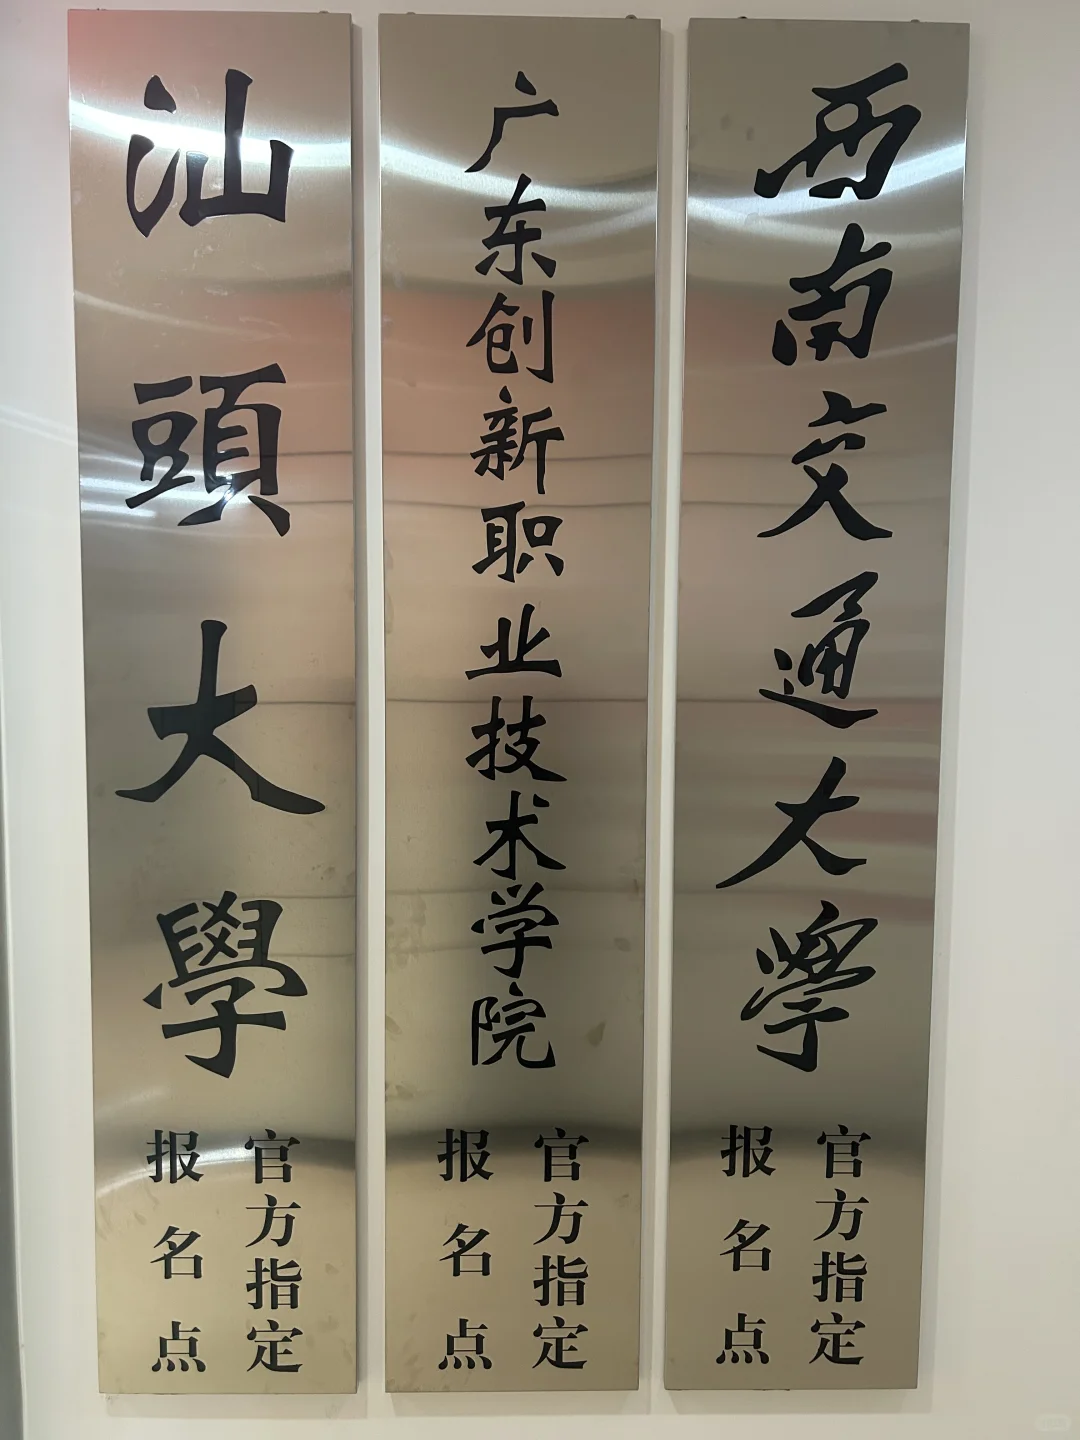 汕頭大學
官方指定
报名点
广东创新职业技术学院
官方指定
报名点
西南交通大学
官方指定
报名点